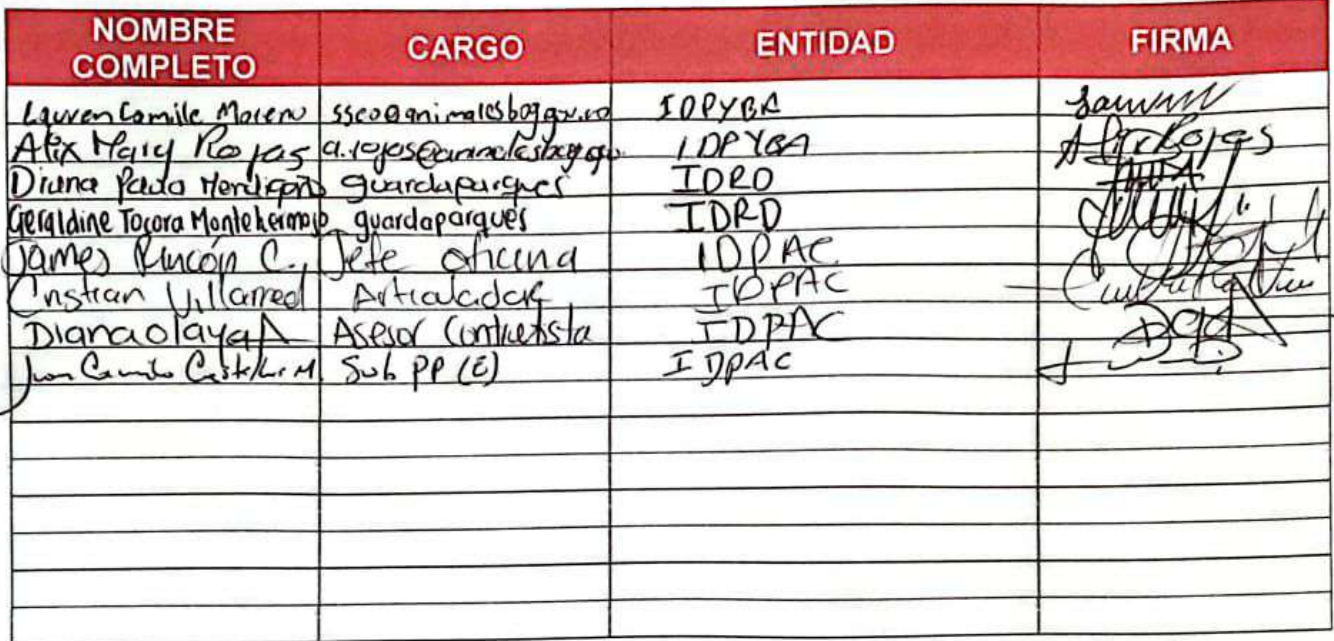 NOMBRE COMPLETO CARGO ENTIDAD FIRMA
Lauren Camile Moreno ssco@animalesbog.gov.co IDPYBA
Alix Mary Rojas a.rojos@animalesbog.go IDPYBA Alix Rojas
Diana Paola guardaparques IDRD
Geraldine Tocora Montehermoso guardaparques IDRD
James Rincón C. Jefe oficina IDPAC
Cristian Villarreal Articulador IDPAC
Diana Olaya A Asesor Contratista IDPAC
Juan Camilo M Sub PP (E) IDPAC